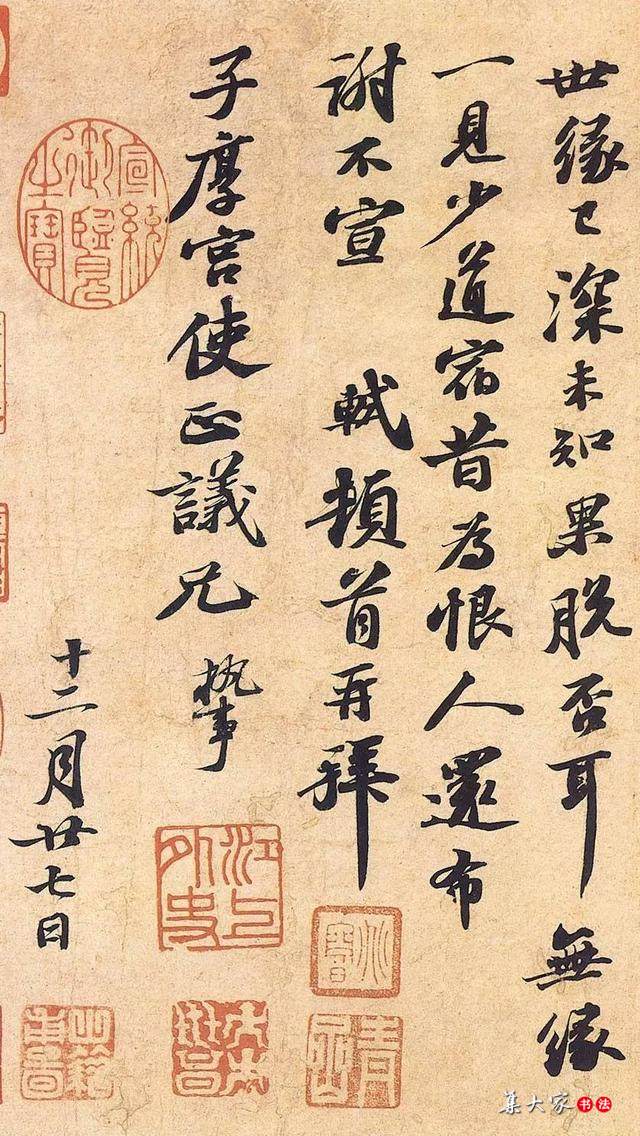 世缘已深未知果脱否耳無缘
一見少道宿昔為恨人還布
謝不宣 軾頓首再拜
子厚宫使正議兄 執事
十二月廿七日
宣統御覽之寶
江上外史
集大家书法